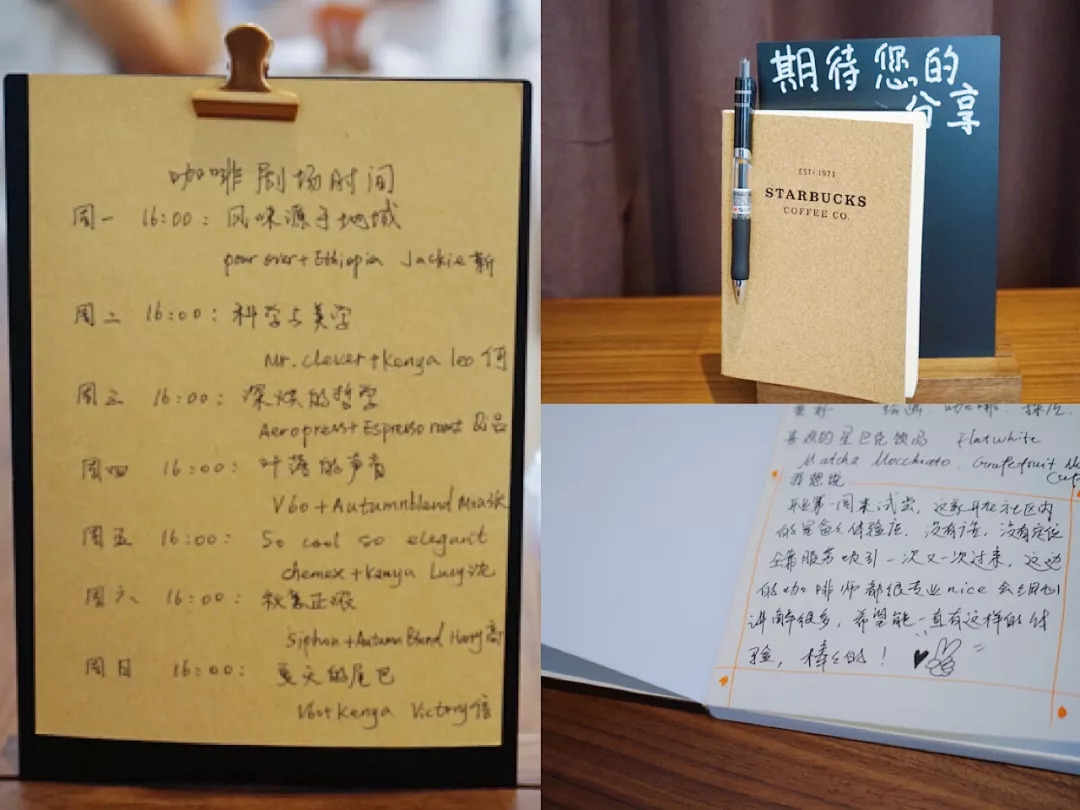 咖啡剧场时间
周一 16:00：风味源于地域
pour over+Ethiopia Jackie靳
周二 16:00：科学与美学
Mr. clever+Kenya leo 何
周三 16:00：深烘的哲学
Aeropress+Espresso roast
周四 16:00：叶落的声音
V60+Autumnblend
周五 16:00：So cool so elegant
chemex+Kenya Lucy沈
周六 16:00：
siphon+Autumn Blend Harry
周日 16:00：夏天的尾巴
V60+Kenya Victory
期待您的
分享
ESTD 1971
STARBUCKS
COFFEE CO.
喜欢的星巴克饮品 Flatwhite
Matcha Macchiato、Grapefruit
我想说
开业第一周来试点，这家开在社区内
的星巴克体验店，没有广告，没有定位
全靠服务吸引一次又一次过来，这边
的咖啡师都很专业nice会细心
讲解很多，希望能一直有这样的体
验，棒棒的！